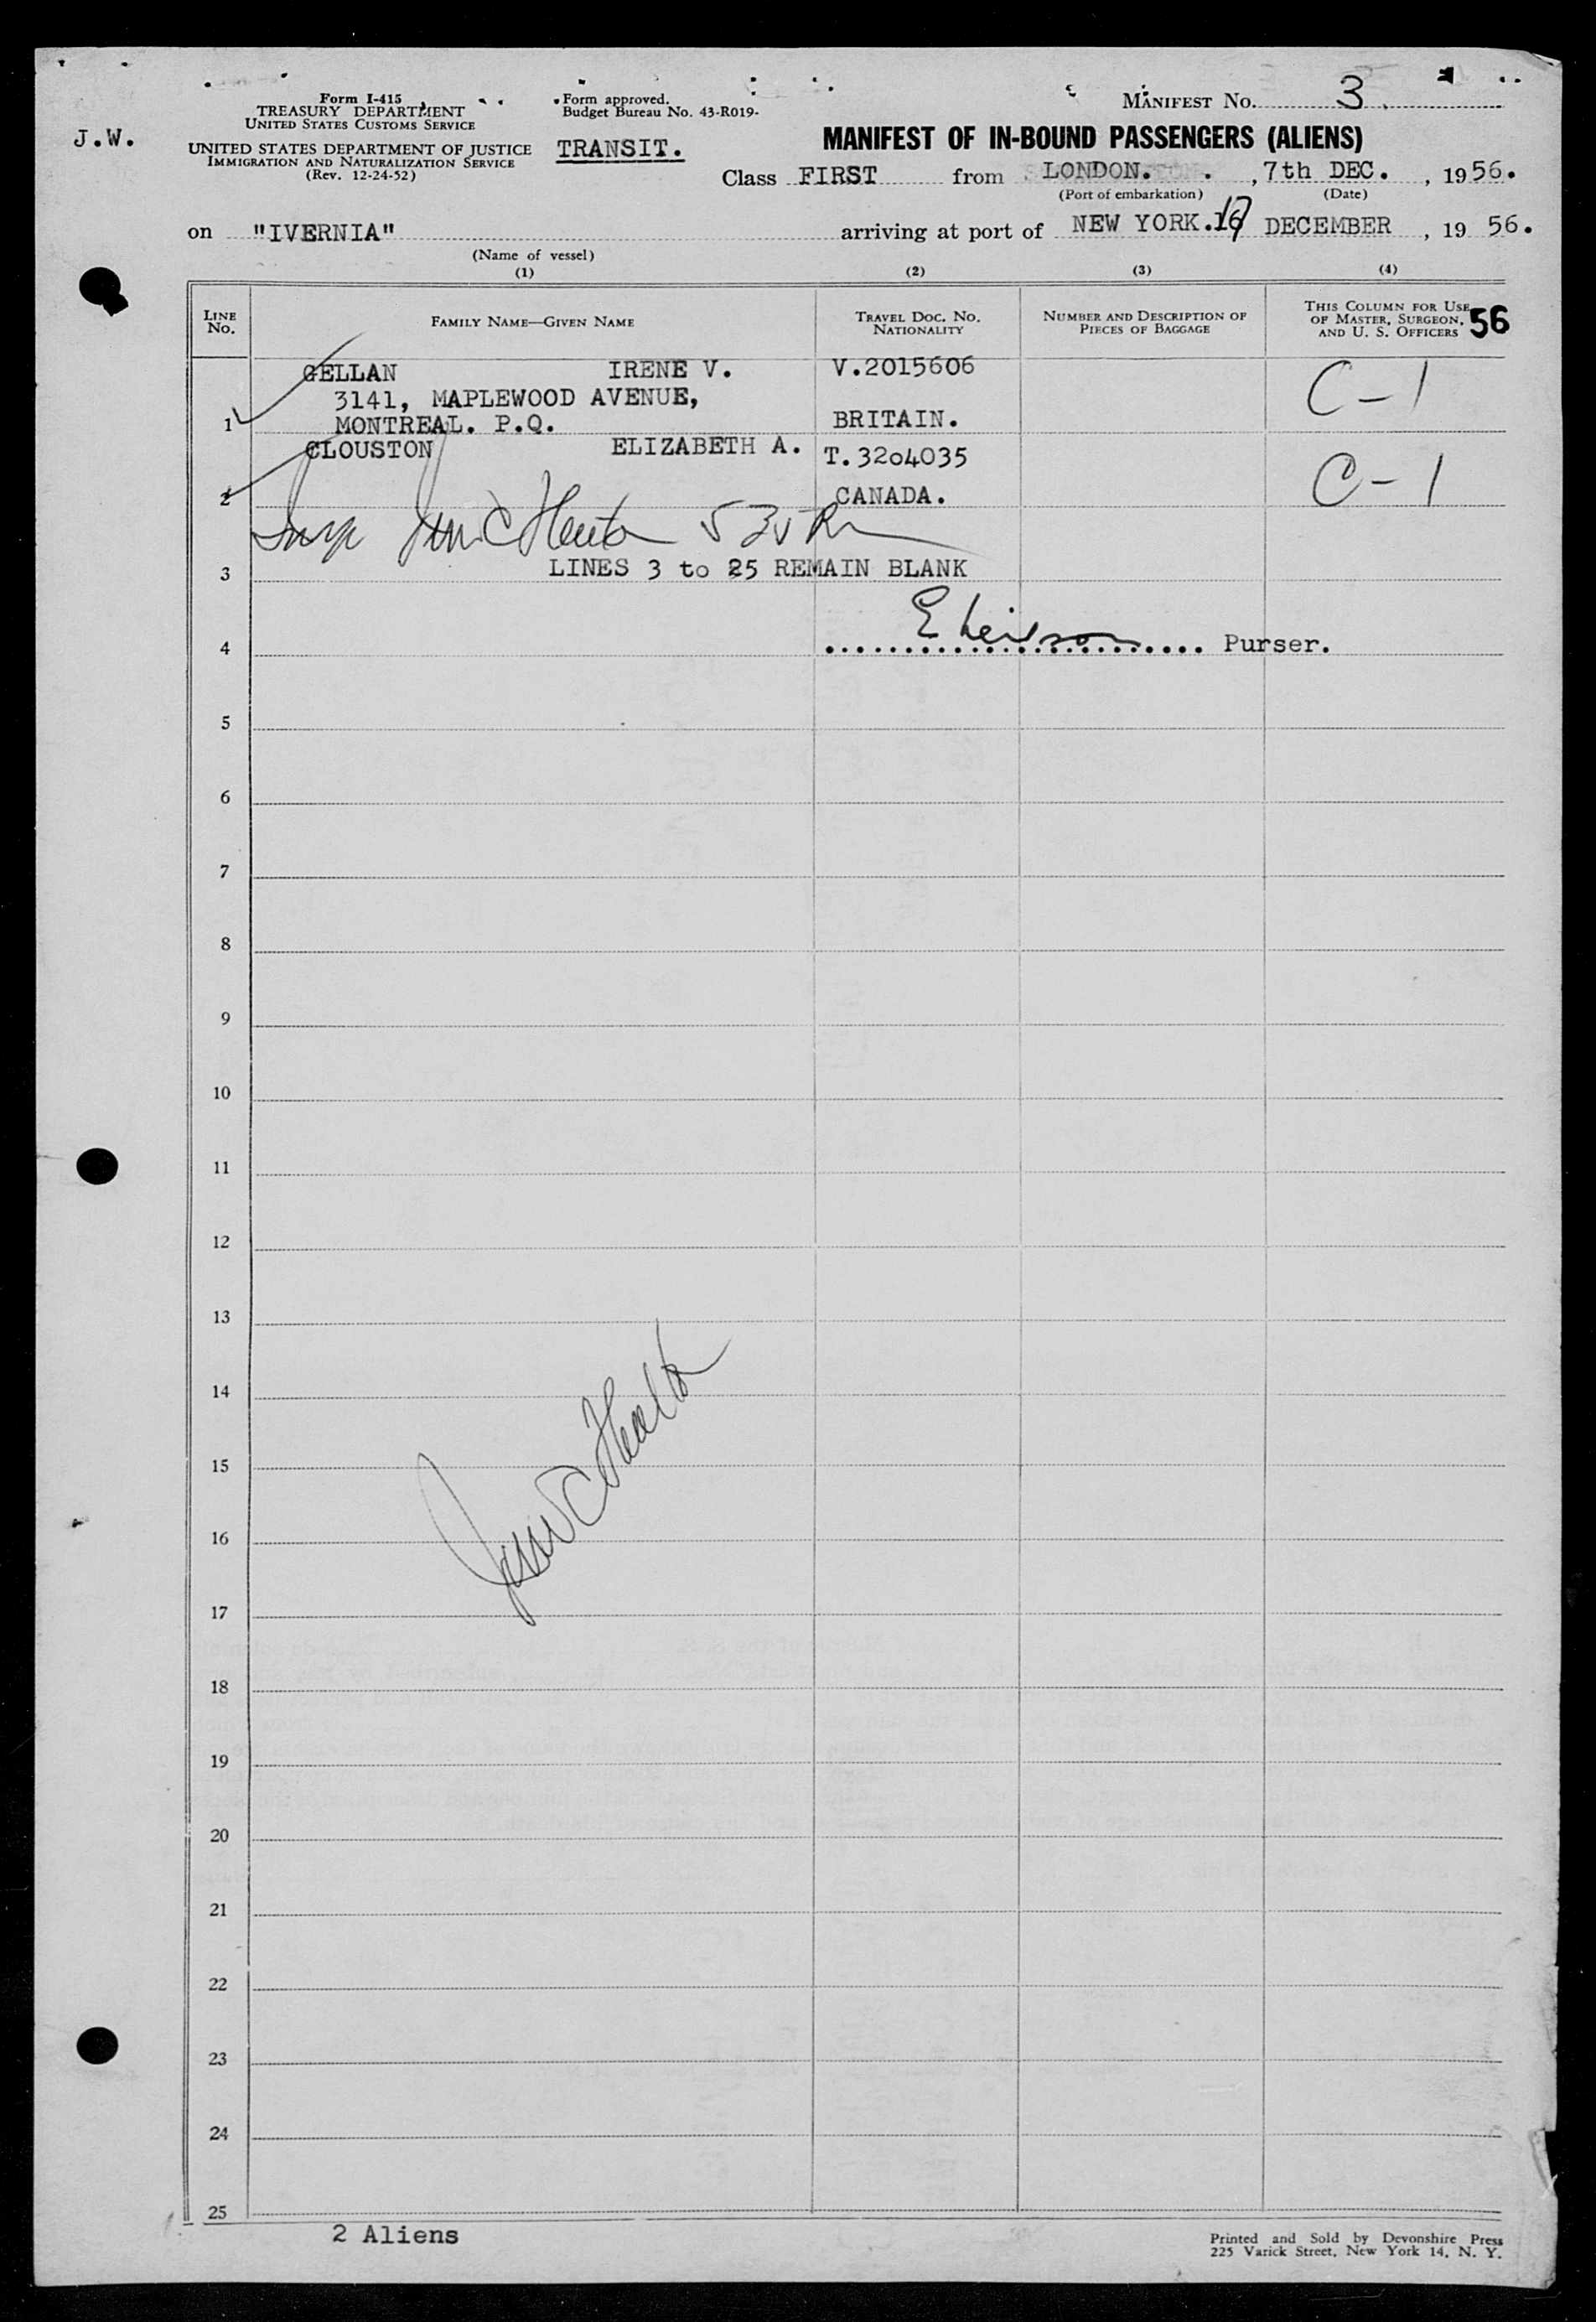 Form I-415
TREASURY DEPARTMENT
UNITED STATES CUSTOMS SERVICE
UNITED STATES DEPARTMENT OF JUSTICE
IMMIGRATION AND NATURALIZATION SERVICE
(Rev. 12-24-52)
J.W.
Form approved.
Budget Bureau No. 43-R019-
TRANSIT.
MANIFEST No. 3
MANIFEST OF IN-BOUND PASSENGERS (ALIENS)
Class FIRST from LONDON. , 7th DEC. , 1956.
(Port of embarkation) (Date)
on "IVERNIA" arriving at port of NEW YORK. DECEMBER , 19 56.
(Name of vessel)
(1) (2) (3) (4)
LINE No. FAMILY NAME—GIVEN NAME TRAVEL DOC. No. NATIONALITY NUMBER AND DESCRIPTION OF PIECES OF BAGGAGE THIS COLUMN FOR USE OF MASTER, SURGEON, AND U. S. OFFICERS 56
GELLAN IRENE V. V.2015606 C-1
3141, MAPLEWOOD AVENUE,
1 MONTREAL. P.Q. BRITAIN.
CLOUSTON ELIZABETH A. T.3204035 C-1
2 CANADA.
3 LINES 3 to 25 REMAIN BLANK
4 Purser.
5
6
7
8
9
10
11
12
13
14
15
16
17
18
19
20
21
22
23
24
25
2 Aliens
Printed and Sold by Devonshire Press
225 Varick Street, New York 14, N. Y.